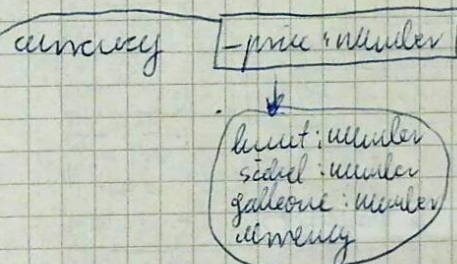 currency
- price : number
knut : number
sickel : number
galleone : number
currency